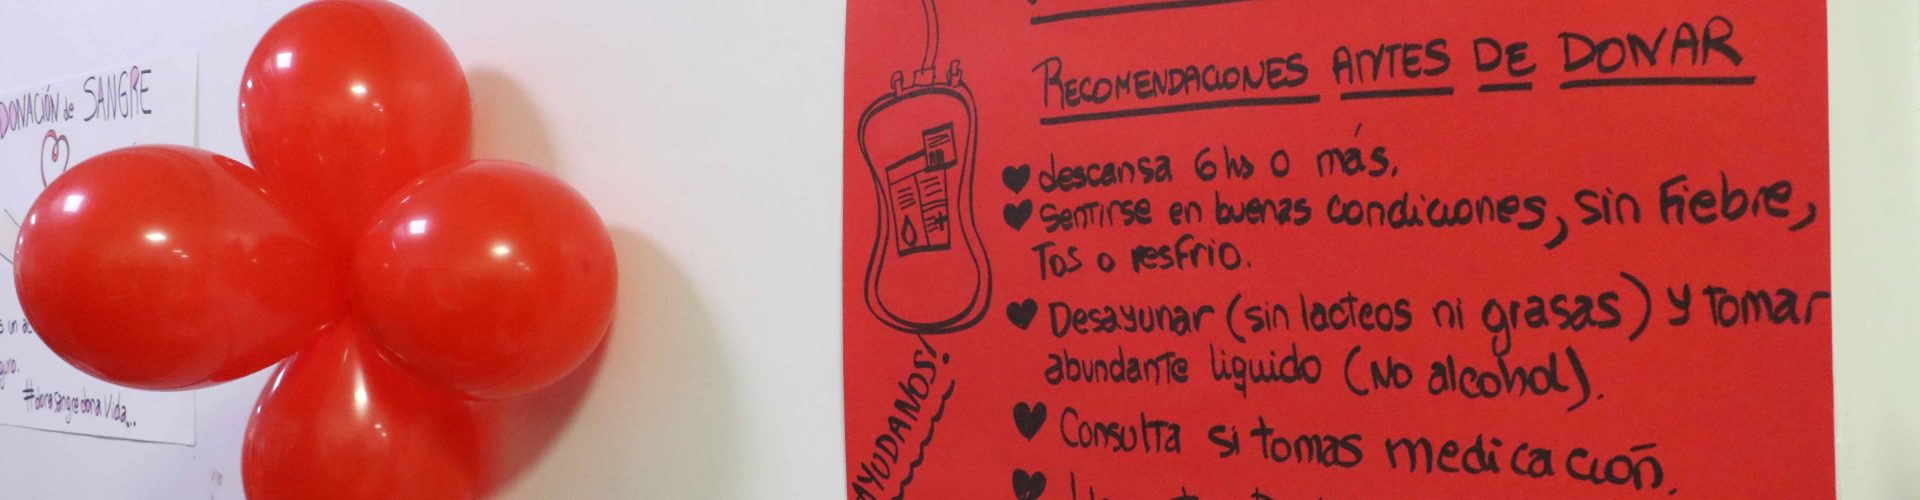 DONACIÓN de SANGRE
s un ac
guro.
#donasangredonavida...
RECOMENDACIONES ANTES DE DONAR
descansa 6 hs o más.
sentirse en buenas condiciones, sin fiebre,
Tos o resfrio.
Desayunar (sin lacteos ni grasas) y tomar
abundante liquido (No alcohol).
Consulta si tomas medicación.
AYUDANOS!